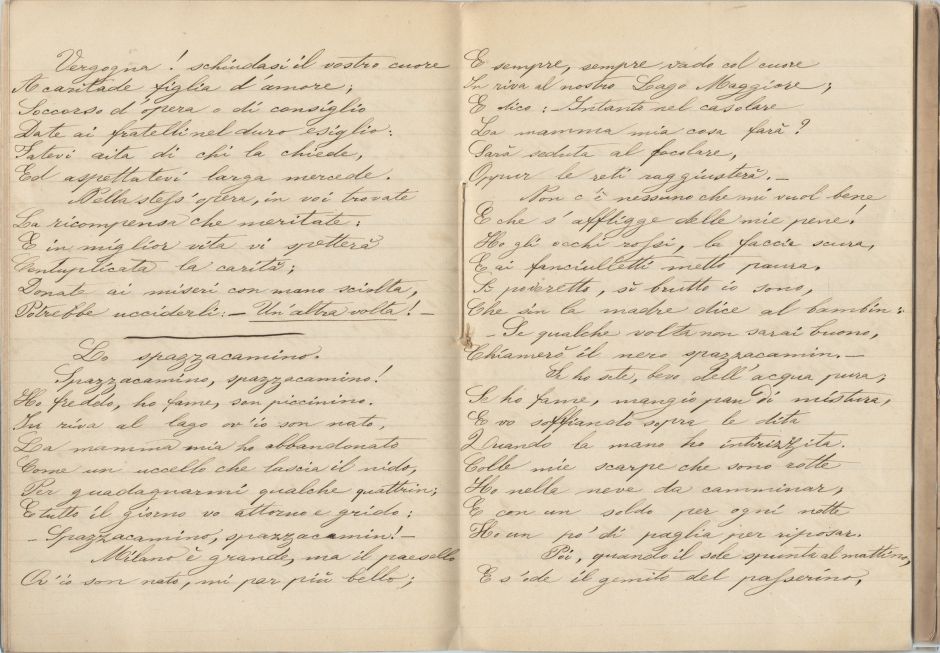 Vergogna! schiudasi il vostro cuore
A caritade figlia d'amore;
Soccorso d'opera o di consiglio
Date ai fratelli nel duro esiglio:
Fatevi aita di chi la chiede,
Ed aspettatevi larga mercede.
Nella stess'opera, in voi trovate
La ricompensa che meritate:
E in miglior vita vi spetterà
Centuplicata la carità;
Donate ai miseri con mano sciolta,
Potrebbe ucciderli: - Un'altra volta! -
Lo spazzacamino.
Spazzacamino, spazzacamino!
Ho freddo, ho fame, son piccinino.
In riva al lago ov'io son nato,
La mamma mia ho abbandonato
Come un uccello che lascia il nido,
Per guadagnarmi qualche quattrin;
E tutto il giorno vo attorno e grido:
- Spazzacamino, spazzacamin! -
Milano è grande, ma il paesello
Ov'io son nato, mi par più bello;
E sempre, sempre vado col cuore
In riva al nostro Lago Maggiore;
E dico: - Intanto nel casolare
La mamma mia cosa farà?
Sarà seduta al focolare,
Oppur le reti raggiusterà. -
Non c'è nessuno che mi vuol bene
E che s'affligge delle mie pene!
Ho gli occhi rossi, la faccia scura,
E ai fanciulletti metto paura.
Sì poveretto, sì brutto io sono,
Che sin la madre dice al bambin:
- Se qualche volta non sarai buono,
Chiamerò il nero spazzacamin. -
Se ho sete, bevo dell'acqua pura,
Se ho fame, mangio pan di mistura,
E vo soffiando sopra le dita
Quando la mano ho intirizzita.
Colle mie scarpe che sono rotte
Ho nella neve da camminar;
E con un soldo per ogni notte
Ho un po' di paglia per riposar.
Poi, quando il sole spunta al mattino,
E s'ode il gemito del passerino,